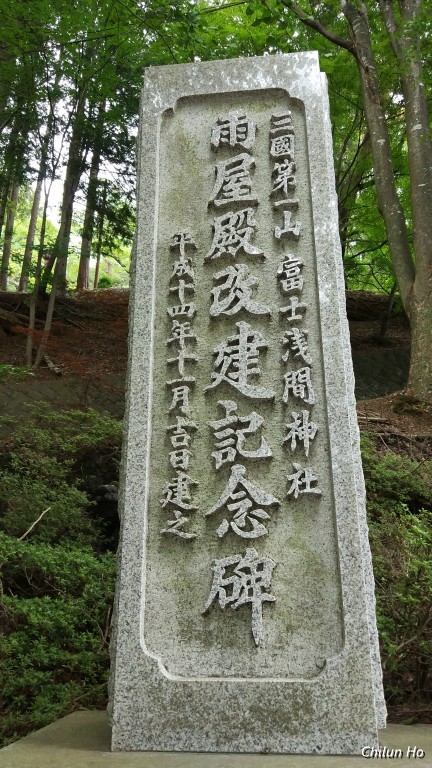 三國第一山 富士浅間神社
雨屋殿改建記念碑
平成十四年十一月吉日建之
Chilun Ho